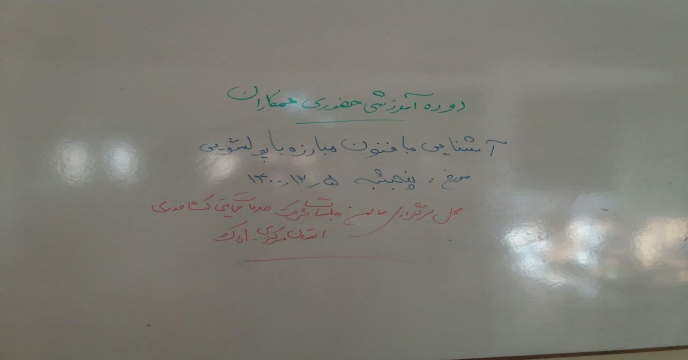 دوره آموزشی حضوری همکاران
آشنایی با فنون مبارزه با پولشویی
مورخ: پنجشنبه ۱۴۰۰،۱۲،۵
محل برگزاری سالن جلسات شرکت خدمات حمایتی کشاورزی
استان مرکزی - اراک